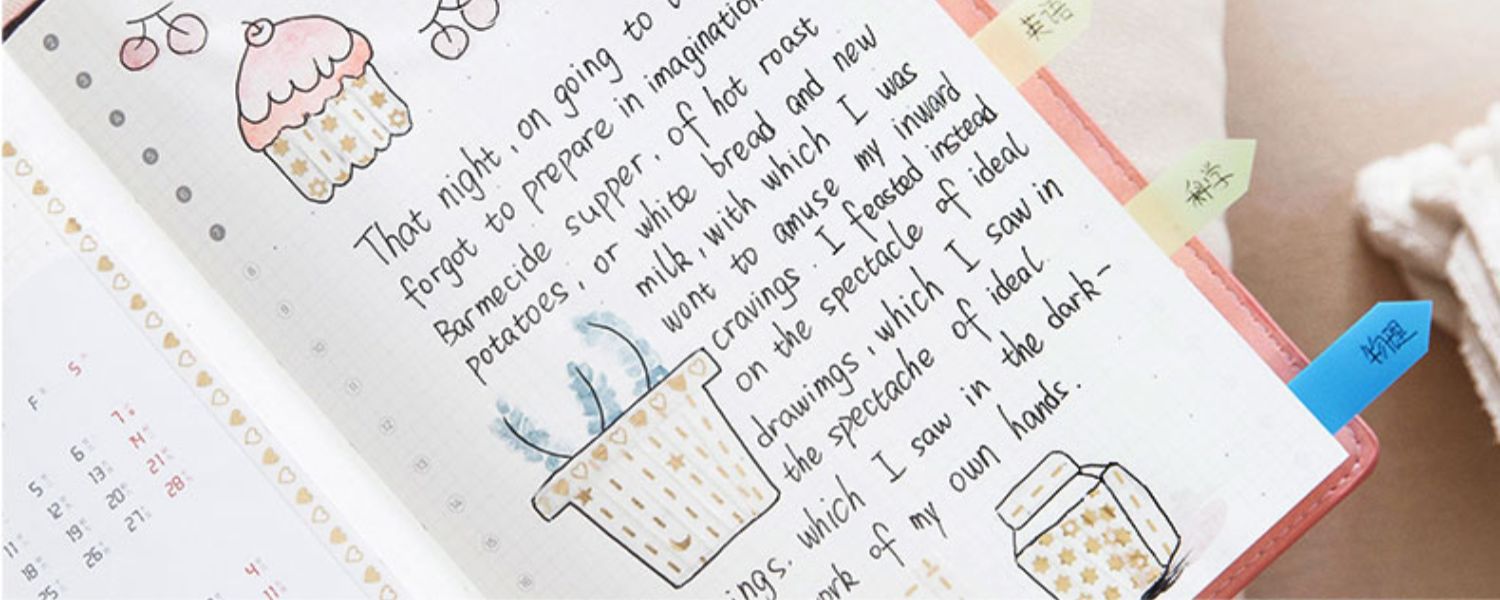 That night, on going to
forgot to prepare in imagination
Barmecide supper, of hot roast
potatoes, or white bread and new
milk, with which I was
wont to amuse my inward
cravings. I feasted instead
on the spectacle of ideal
drawimgs, which I saw in
the spectache of ideal.
ings. which I saw in the dark-
ork of my own hands.
英语
科学
物理
F S
7
5 6 14
12 13 21
11 19 20 28
18 26 27
25
4
11
8
9
10
11
12
13
14
15
16